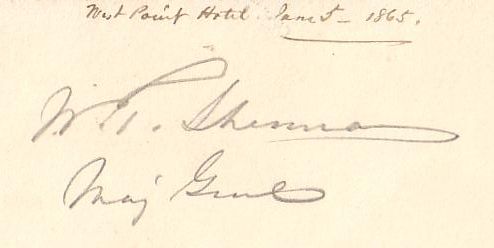 West Point Hotel June 5- 1865.
W.T. Sherman
Maj Genl